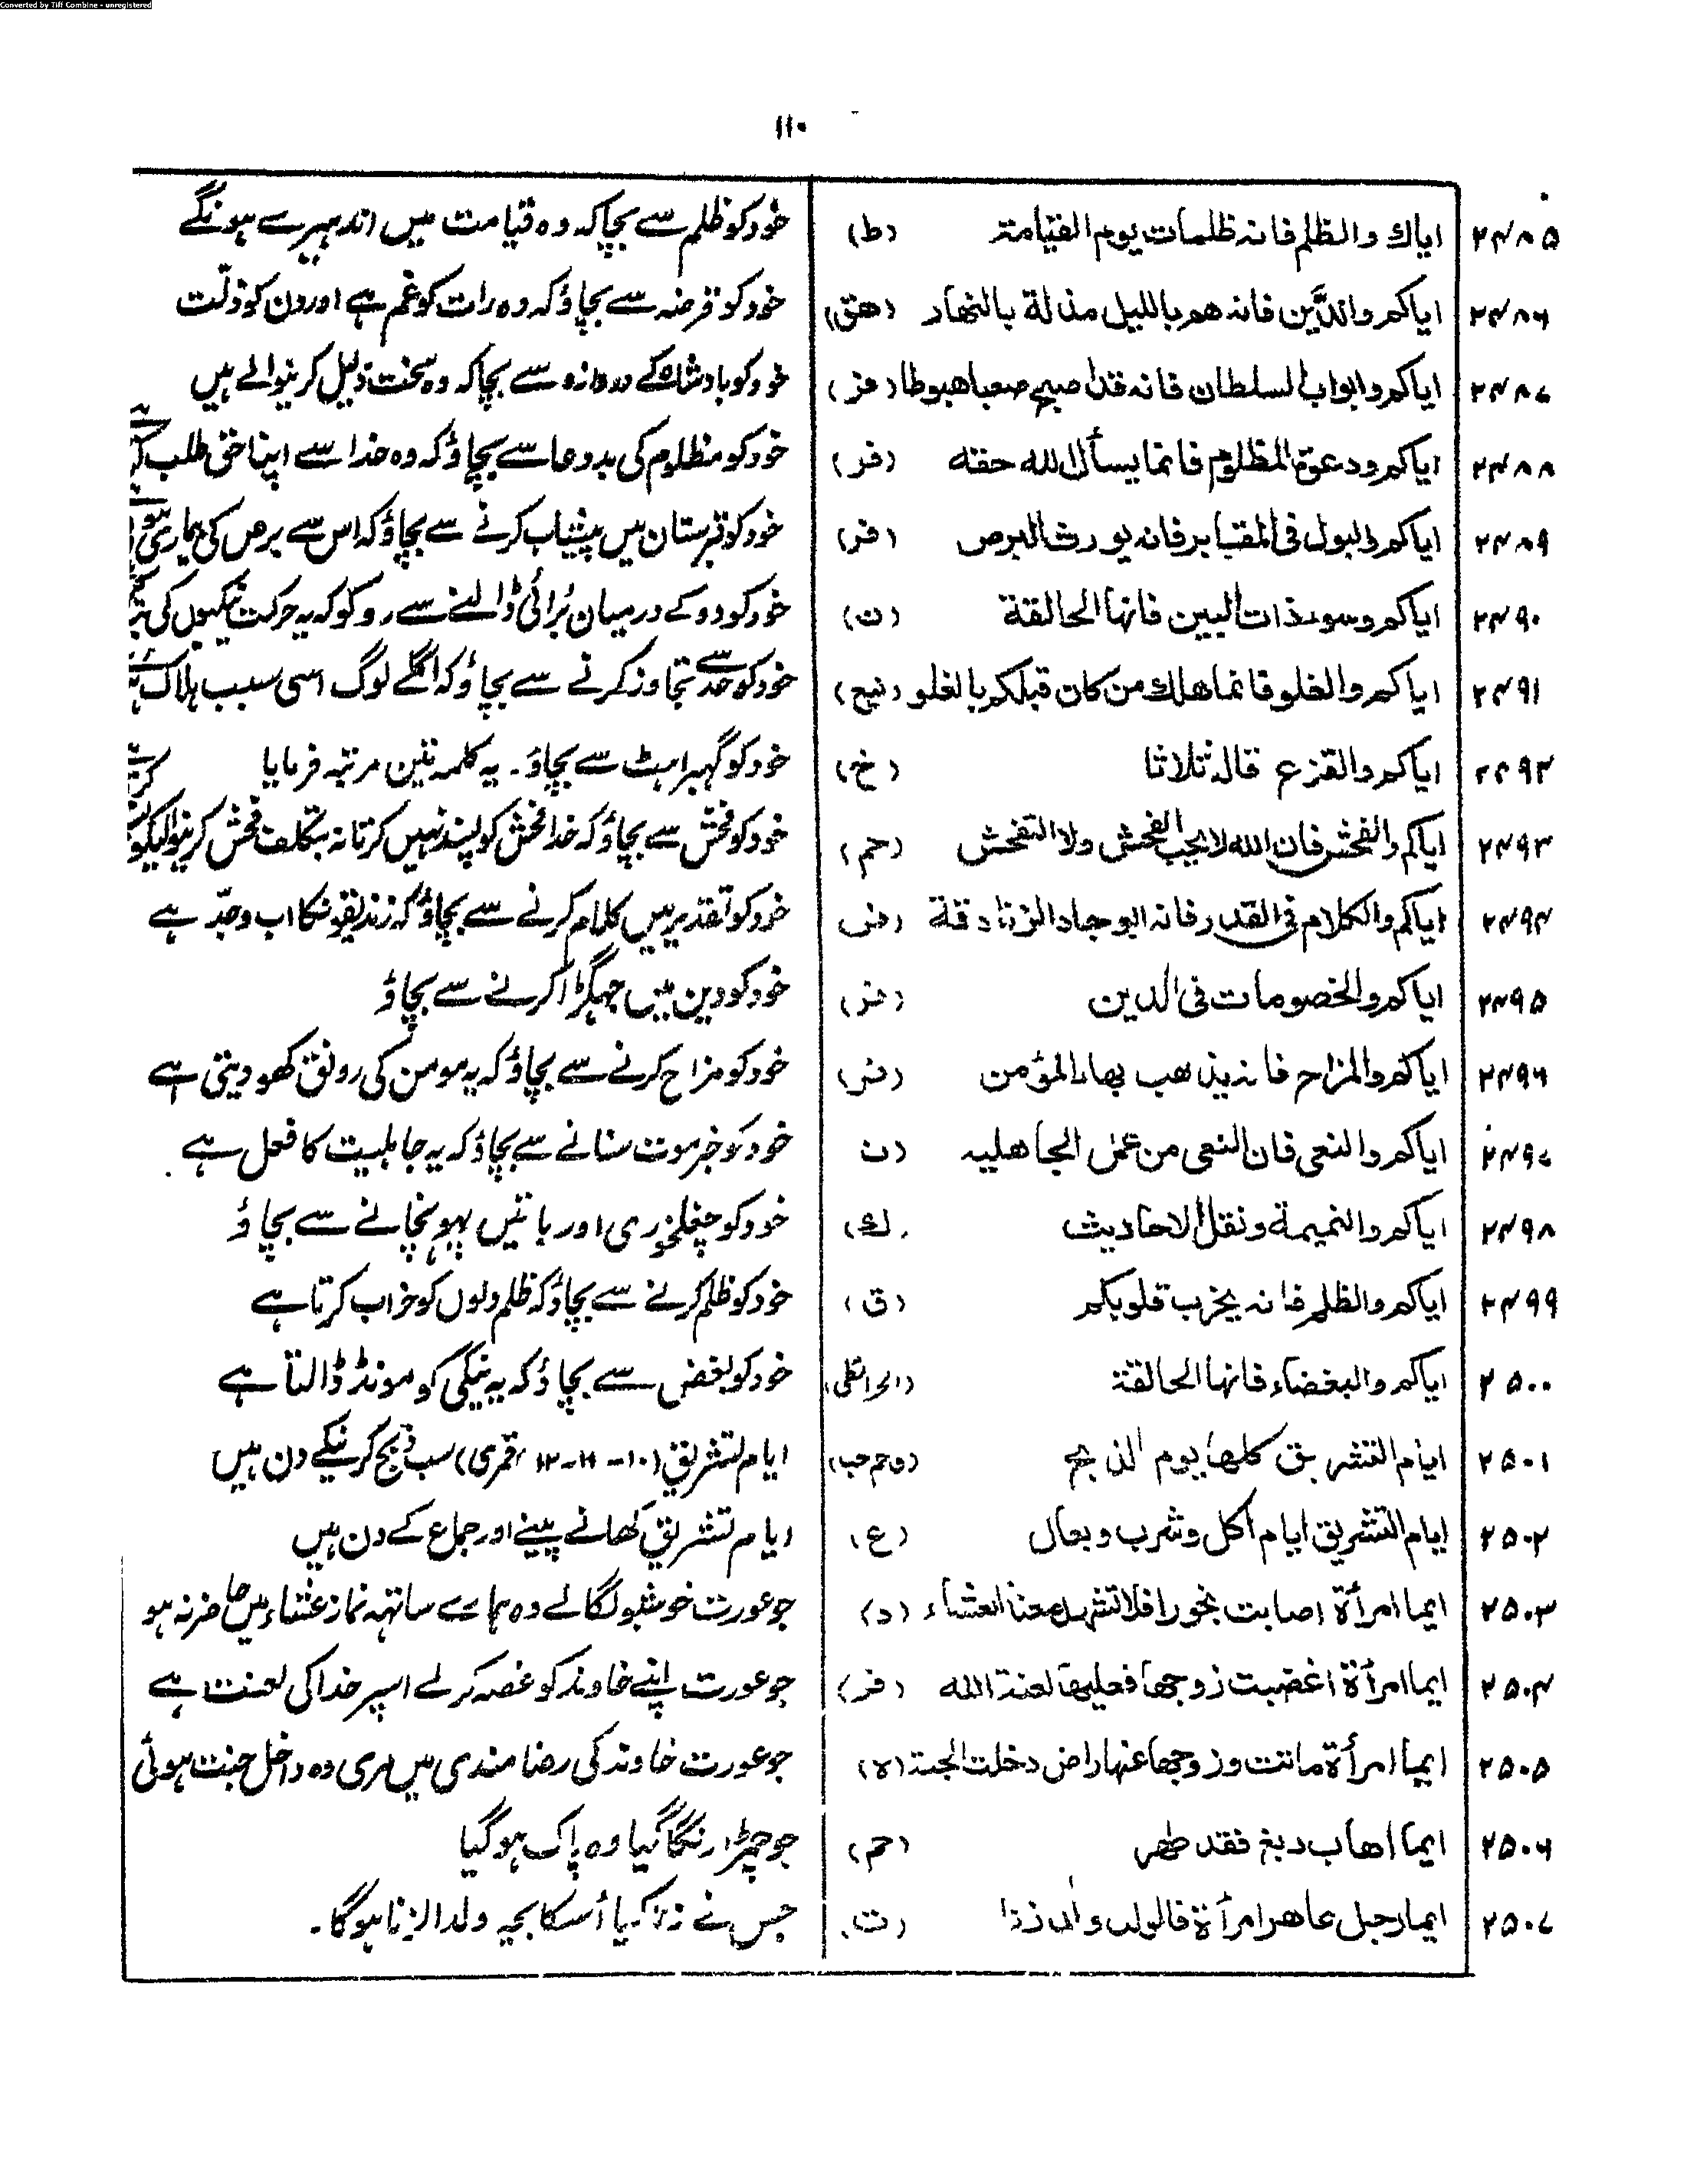 Converted by Tiff Combine - unregistered
۱۱۰
۲۴۸۵ اياك والظلم فانه ظلمات يوم القيامة (ط) خود کو ظلم سے بچا کہ وہ قیامت میں اندہیرے ہونگے
۲۴۸۶ اياكم والدَّين فانه هم بالليل مذلة بالنهار (هق) خود کو قرضہ سے بچاؤ کہ وہ رات کو غم ہے اور دن کو ذلّت
۲۴۸۷ اياكم وابواب السلطان فانه قد اصبح صعبا هبوطا (فر) خود کو بادشاہ کے دروازہ سے بچا کہ وہ سخت ذلیل کرنیوالے ہیں
۲۴۸۸ اياكم ودعوة المظلوم فانما يسأل الله حقه (فر) خود کو مظلوم کی بددعا سے بچاؤ کہ وہ خدا سے اپنا حق طلب
۲۴۸۹ اياكم والبول فى المقابر فانه يورث البرص (فر) خود کو قبرستان میں پیشاب کرنے سے بچاؤ کہ اس سے برص کی بیماری
۲۴۹۰ اياكم وسوء ذات البين فانها الحالقة (ت) خود کو دو کے درمیان بُرائی ڈالنے سے روکو کہ یہ حرکت نیکیوں کی
۲۴۹۱ اياكم والغلو فانما هلك من كان قبلكم بالغلو خود کو حد سے تجاوز کرنے سے بچاؤ کہ اگلے لوگ اسی سبب ہلاک
۲۴۹۲ اياكم والقزع قاله ثلاثا (خ) خود کو گہبراہٹ سے بچاؤ۔ یہ کلمہ تین مرتبہ فرمایا
۲۴۹۳ اياكم والفحش فان الله لا يحب الفحش ولا التفحش (حم) خود کو فحش سے بچاؤ کہ خدا فحش کو پسند نہیں کرتا نہ بتکلف فحش کرنیوالیکو
۲۴۹۴ اياكم والكلام فى القدر فانه ابوجاد الزنادقة (فر) خود کو تقدیر میں کلام کرنے سے بچاؤ کہ زندیقونکا اب وجدّ ہے
۲۴۹۵ اياكم والخصومات فى الدين (فر) خود کو دین میں جہگڑا کرنے سے بچاؤ
۲۴۹۶ اياكم والمزاح فانه يذهب بهاء المؤمن (فر) خود کو مزاح کرنے سے بچاؤ کہ یہ مومن کی رونق کھو دیتی ہے
۲۴۹۷ اياكم والنعى فان النعى من عمل الجاهليه (ت خود کو خبر موت سنانے سے بچاؤ کہ یہ جاہلیت کا فعل ہے
۲۴۹۸ اياكم والنميمة ونقل الاحاديث خود کو چغلخوری اور باتیں پہونچانے سے بچاؤ
۲۴۹۹ اياكم والظلم فانه يخرب قلوبكم (ق) خود کو ظلم کرنے سے بچاؤ کہ ظلم دلوں کو خراب کرتا ہے
۲۵۰۰ اياكم والبغضاء فانها الحالقة (الخرائطى) خود کو بغض سے بچاؤ کہ یہ نیکی کو مونڈ ڈالتا ہے
۲۵۰۱ ايام التشريق كلها يوم الذبح (حم حب) ایام تشریق (۱۰-۱۱-۱۲ قمری) سب ذبح کرنیکے دن ہیں
۲۵۰۲ ايام التشريق ايام اكل وشرب وبعال (ع) ایام تشریق کھانے پینے اور جماع کے دن ہیں
۲۵۰۳ ايما امرأة اصابت بخورا فلا تشهد معنا العشاء (د) جو عورت خوشبو لگالے وہ ہمارے ساتہہ نماز عشاء میں حاضر نہ ہو
۲۵۰۴ ايما امرأة اغضبت زوجها فعليها لعنة الله (فر) جو عورت اپنے خاوند کو غصہ کرلے اسپر خدا کی لعنت ہے
۲۵۰۵ ايما امرأة ماتت وزوجها عنها راض دخلت الجنة (ه) جو عورت خاوند کی رضامندی میں مری وہ داخل جنت ہوئی
۲۵۰۶ ايما اهاب دبغ فقد طهر (حم) جو چمڑا رنگا گیا وہ پاک ہو گیا
۲۵۰۷ ايما رجل عاهر امرأة فالولد ولد زنا (ت) جس نے زنا کیا اُسکا بچہ ولدالزنا ہوگا۔